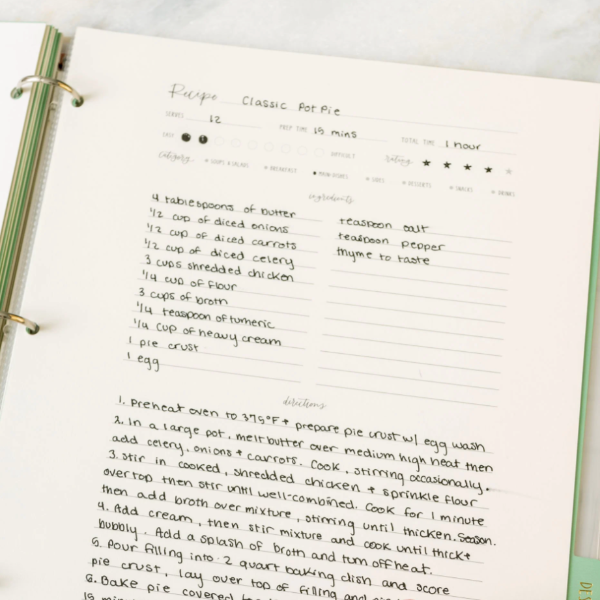 Recipe Classic Pot Pie
SERVES 12 PREP TIME 15 mins TOTAL TIME 1 hour
EASY DIFFICULT rating ★ ★ ★ ★ ★
category SOUPS & SALADS BREAKFAST MAIN DISHES SIDES DESSERTS SNACKS DRINKS
ingredients
4 tablespoons of butter
1/2 cup of diced onions
1/2 cup of diced carrots
1/2 cup of diced celery
3 cups shredded chicken
1/4 cup of flour
3 cups of broth
1/4 teaspoon of tumeric
1/4 cup of heavy cream
1 pie crust
1 egg
teaspoon salt
teaspoon pepper
thyme to taste
directions
1. Preheat oven to 375°F + prepare pie crust w/ egg wash
2. In a large pot, melt butter over medium high heat then
add celery, onions + carrots. Cook, stirring occasionally.
3. Stir in cooked, shredded chicken + sprinkle flour
over top then stir until well-combined. Cook for 1 minute
then add broth over mixture, stirring until thicken. Season.
4. Add cream, then stir mixture and cook until thick +
bubbly. Add a splash of broth and turn off heat.
5. Pour filling into 2 quart baking dish and score
pie crust, lay over top of filling and
6. Bake pie covered
15